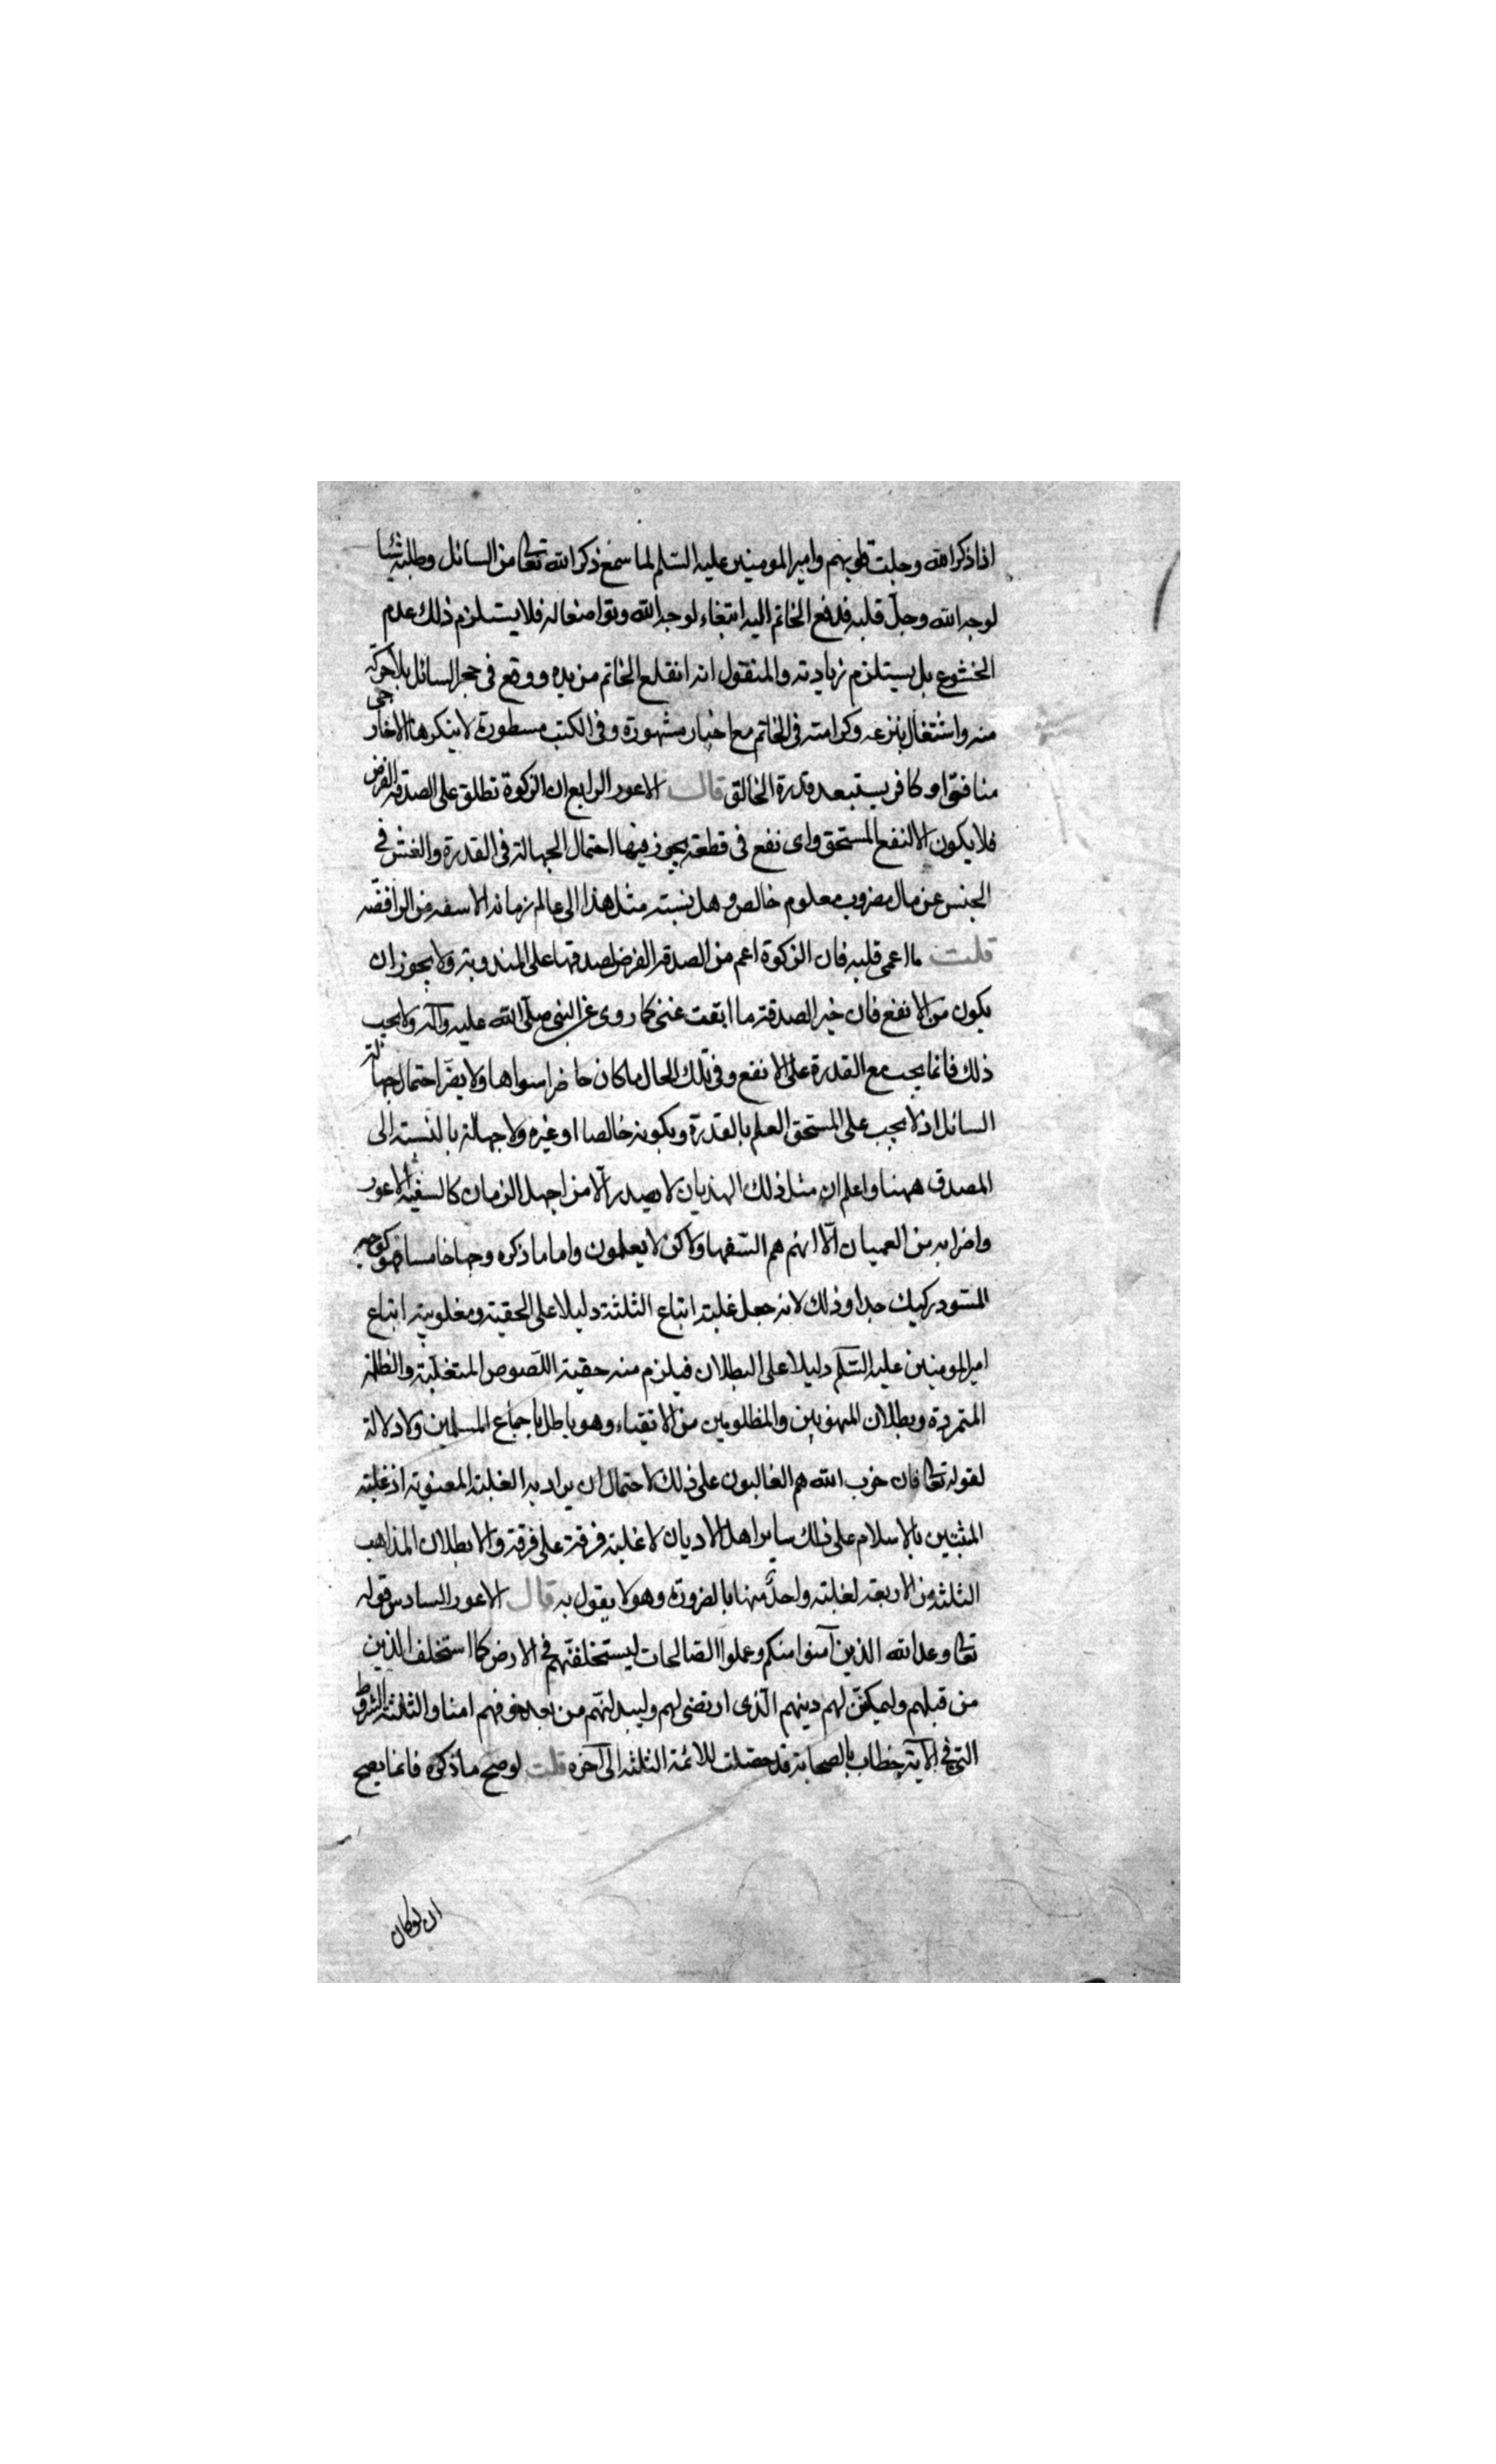 اذا ذكر الله وجلت قلوبهم وامير المومنين عليه السّلم لما سمع ذكر الله تعا من السائل وطلبه شئا
لوجه الله وجلّ قلبه فدفع الخاتم اليه ابتغاء لوجه الله وتواضعا له فلا يستلزم ذلك عدم
الخشوع بل يستلزم زيادته والمنقول انه انقلع الخاتم من يده ووقع فى حجر السائل بلا حركة
منه واشتغال بنزعه وكرامته فى الخاتم مع اخبار مشهورة وفى الكتب مسطورة لا ينكرها الا
منافق او كافر يستبعد قدرة الخالق قال الاعور الرابع ان الزكوة تطلق على الصدقة الفرض
فلا يكون الا لنفع المستحق واى نفع فى قطعة يجوز فيها احتمال الجهالة فى القدرة والغش فى
الجنس عن مال مضروب معلوم خالص وهل نسبته مثل هذا الى عالم زمانه الا سفه من الرافضه
قلت ما اعمى قلبه فان الزكوة اعم من الصدقة الفرض لصدقها على المندوبة ولا يجوز ان
يكون من الانفع فان خير الصدقة ما ابقت غنى كما روى عن النبى صلّى الله عليه وآله ولا يجب
ذلك فانما يجب مع القدرة على الانفع وفى تلك الحال ما كان حاضرا سواها ولا يضرّ احتمال جهالة
السائل اذ لا يجب على المستحق العلم بالقدرة وبكونه خالصا او غيره ولا جهالة بالنسبة الى
المصدق ههنا واعلم ان مثل ذلك الهذيان لا يصدر الّا من اجهل الزمان كالسفيه الاعور
واضرابه من العميان الّا انهم هم السّفها ولاكن لا يعلمون واما ما ذكره وجها خامسا فهو كوجهه
المسّود ركيك جدا وذلك لانه جعل غلبة اتباع الثلثة دليلا على الحقية ومغلوبية اتباع
امير المومنين عليه السّلم دليلا على البطلان فيلزم منه حقية اللّصوص المتغلّبة والظلمة
المتمردة وبطلان المنهوبين والمظلومين من الاتقياء وهو باطل باجماع المسلمين ولا دلالة
لقوله تعا فان حزب الله هم الغالبون على ذلك لاحتمال ان يراد به الغلبة المعنوية اذ غلبة
المثبتين بالاسلام على ذلك ساير اهل الاديان لا غلبة فرقة على فرقة والا بطلان المذاهب
الثلثة من الاربعة لغلبة واحدة منها بالضرورة وهو لا يقول به قال الاعور السادس قوله
تعا وعد الله الذين آمنوا منكم وعملوا الصالحات ليستخلفنّهم فى الارض كما استخلف الذين
من قبلهم وليمكننّ لهم دينهم الّذى ارتضى لهم وليبدلنّهم من بعد خوفهم امنا والثلثة الشروط
التى فى الآية خطاب بالصحابة قد حصلت للائمة الثلثه الى آخره قلت لو صحّ ما ذكره فانما يصح
ان لو كان